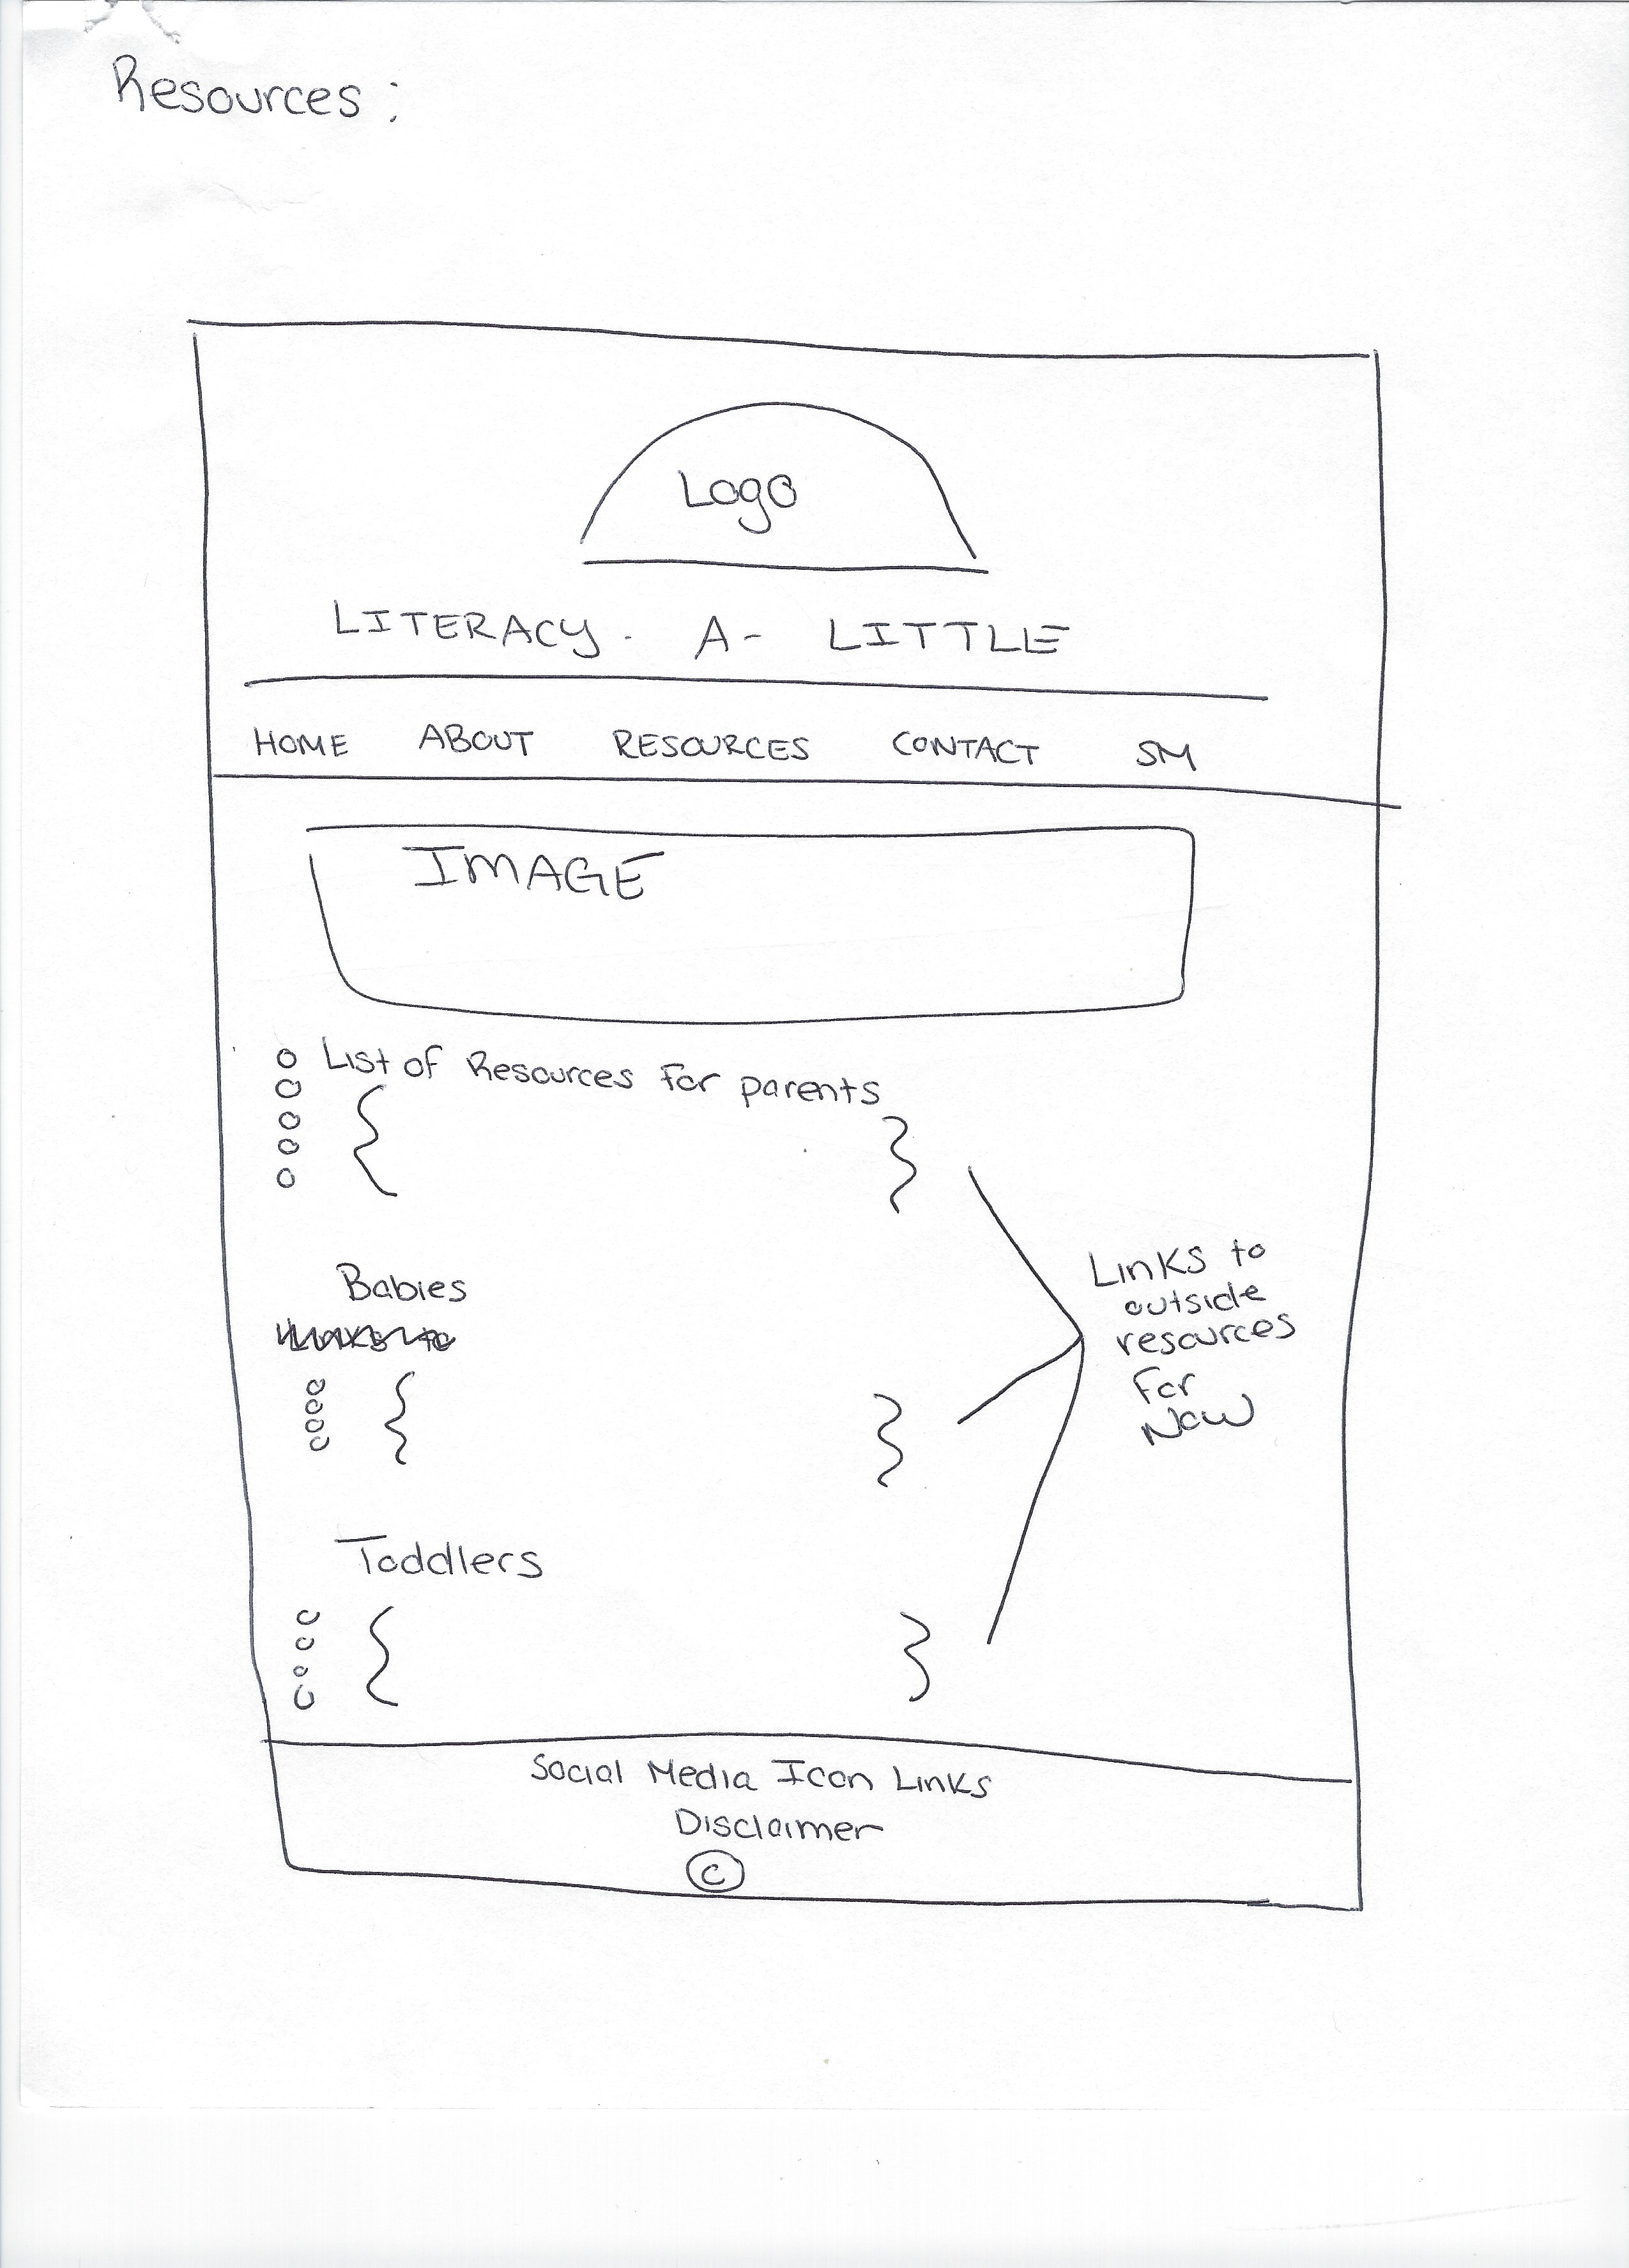 Resources:
Logo
LITERACY - A - LITTLE
HOME ABOUT RESOURCES CONTACT SM
IMAGE
List of Resources For parents
Babies
Links to
outside
resources
For
Now
Toddlers
Social Media Icon Links
Disclaimer
©